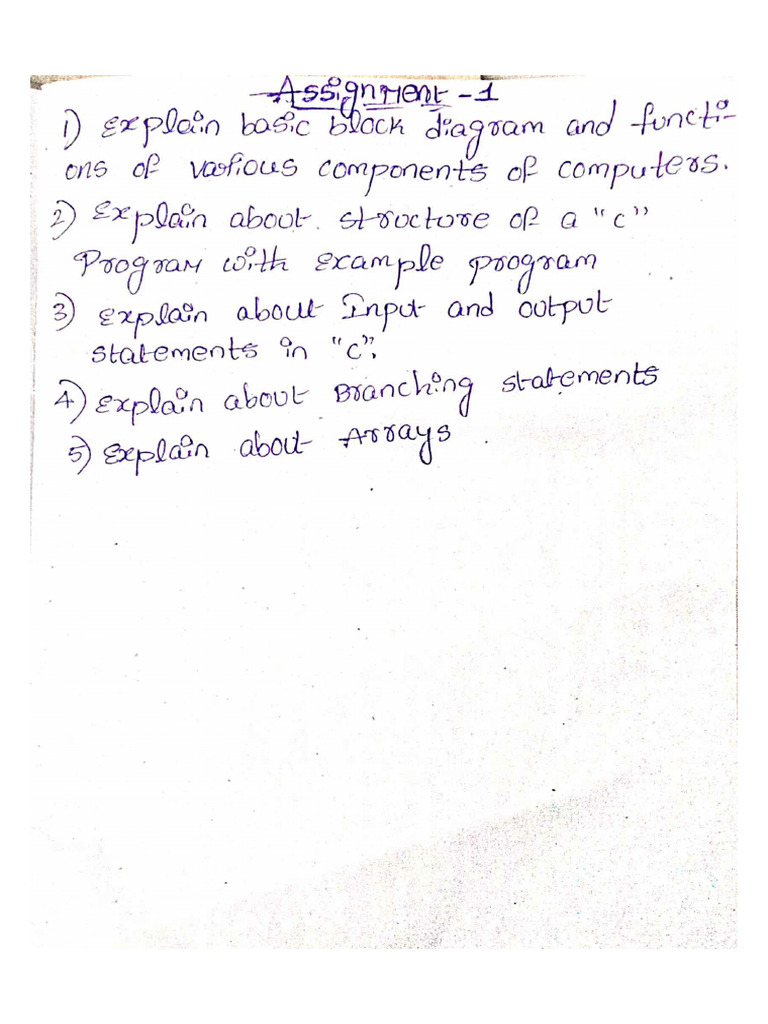 Assignment - 1
1) Explain basic block diagram and functi-
ons of various components of computers.
2) Explain about structure of a "c"
Program with example program
3) Explain about Input and output
statements in "c".
4) Explain about Branching statements
5) Explain about Arrays.